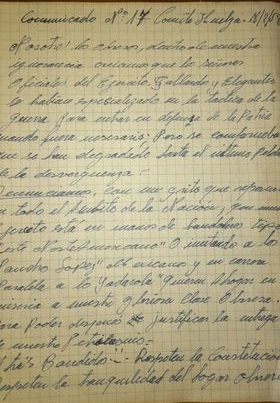 Comunicado Nº 17 Comite Huelga.
Nosotros los obreros, dentro de nuestra
ignorancia creiamos que los señores
Oficiales del Ejercito, Gallardo y Elegantes
se habian especializado en la tactica de la
Guerra para entrar en defensa de la Patria
cuando fuera necesario; Pero se comprueba
que se han degradado hasta el ultimo
de la desverguenza =
Denunciamos, con un grito que repercuta
en todo el Ambito de la Nación, que
Ejercito está en manos de bandoleros tipo
Oeste Norteamericano" O imitando a los
"Pancho Lopez" Mexicano y en carrera
Paralela a lo quieren Ahogar en
miseria a nuestra gloriosa Clase Obrera.
Para Poder despues justificar la entrega
de nuestro Petroleo =
Atrás Bandidos = Respeten la Constitución
respeten la tranquilidad del Hogar Obrero